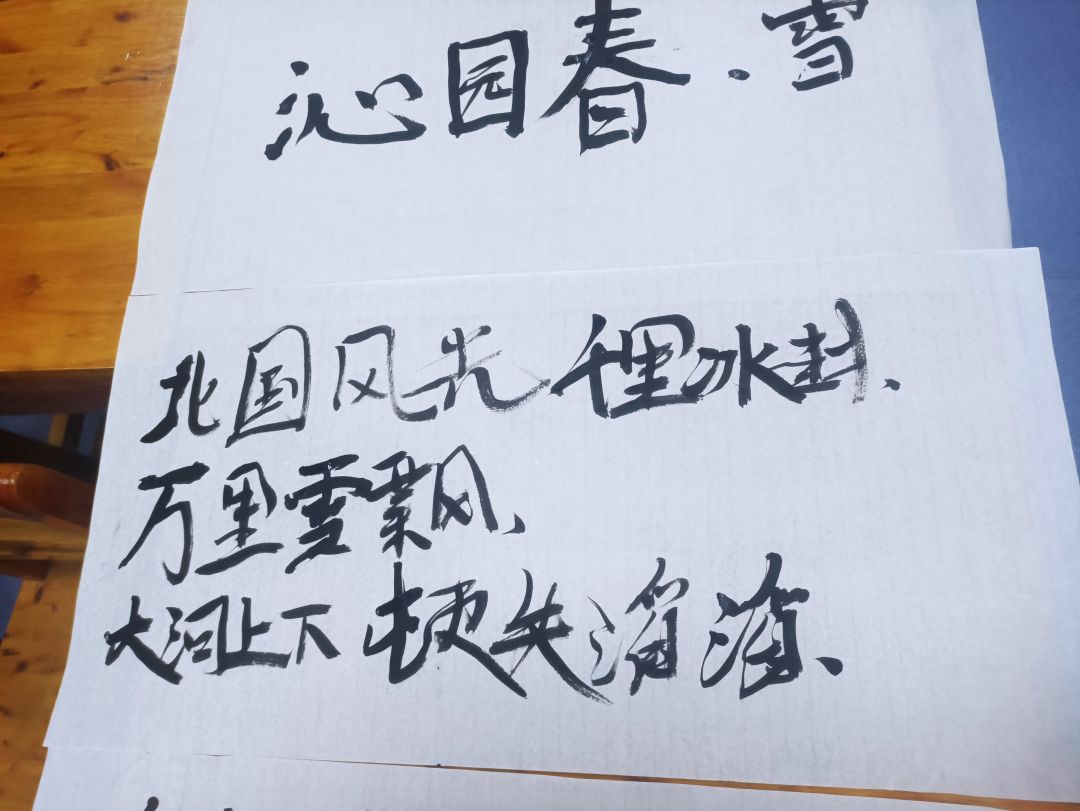 沁园春.雪
北国风光 千里冰封、
万里雪飘、
大河上下 顿失滔滔、